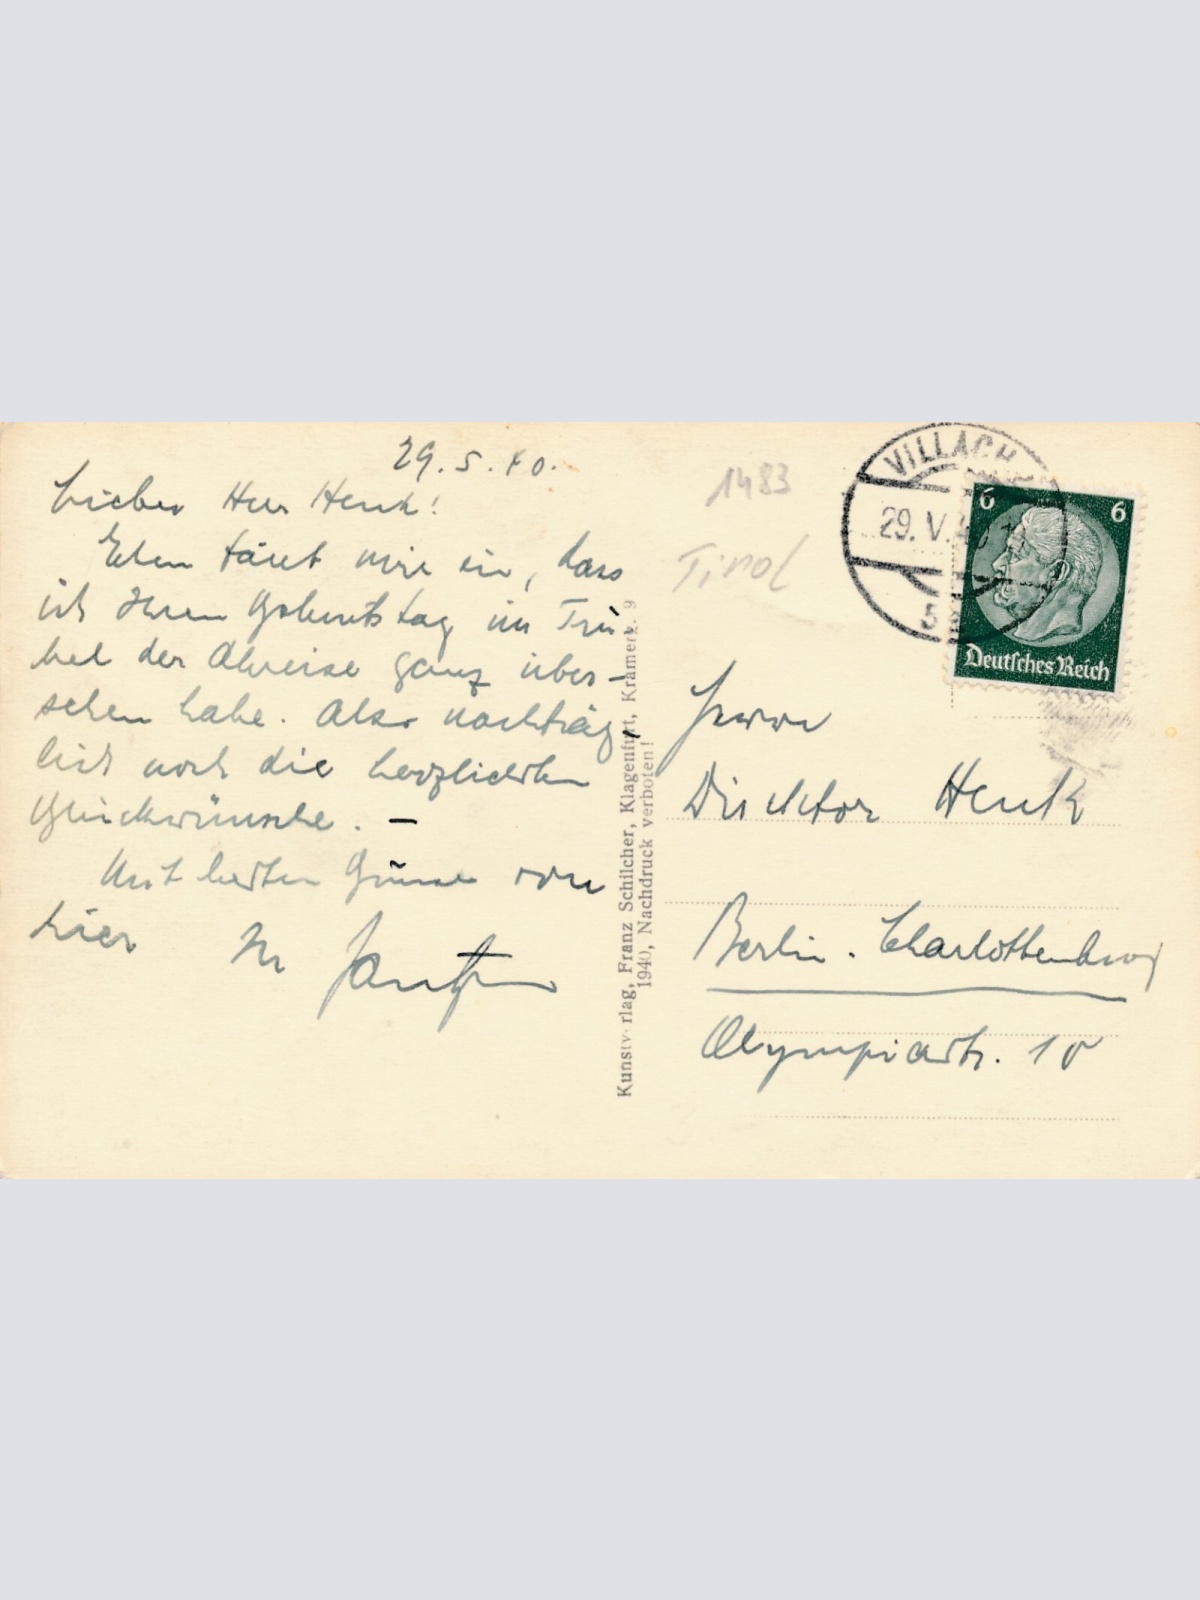 29.5.40.
Lieber Herr Henk!
Eben fällt mir ein, dass
ich Ihren Geburtstag im Tru-
bel der Abreise ganz über-
sehen habe. Also nachträg-
lich noch die herzlichsten
Glückwünsche. –
Mit besten Grüssen von
hier Ihr
1483
Tirol
VILLACH
29. V. 40
5
6 6
Deutsches Reich
Herrn
Direktor Henk
Berlin-Charlottenburg
Olympiastr. 10
Kunstverlag, Franz Schilcher, Klagenfurt, Kramerg. 9
1940, Nachdruck verboten!